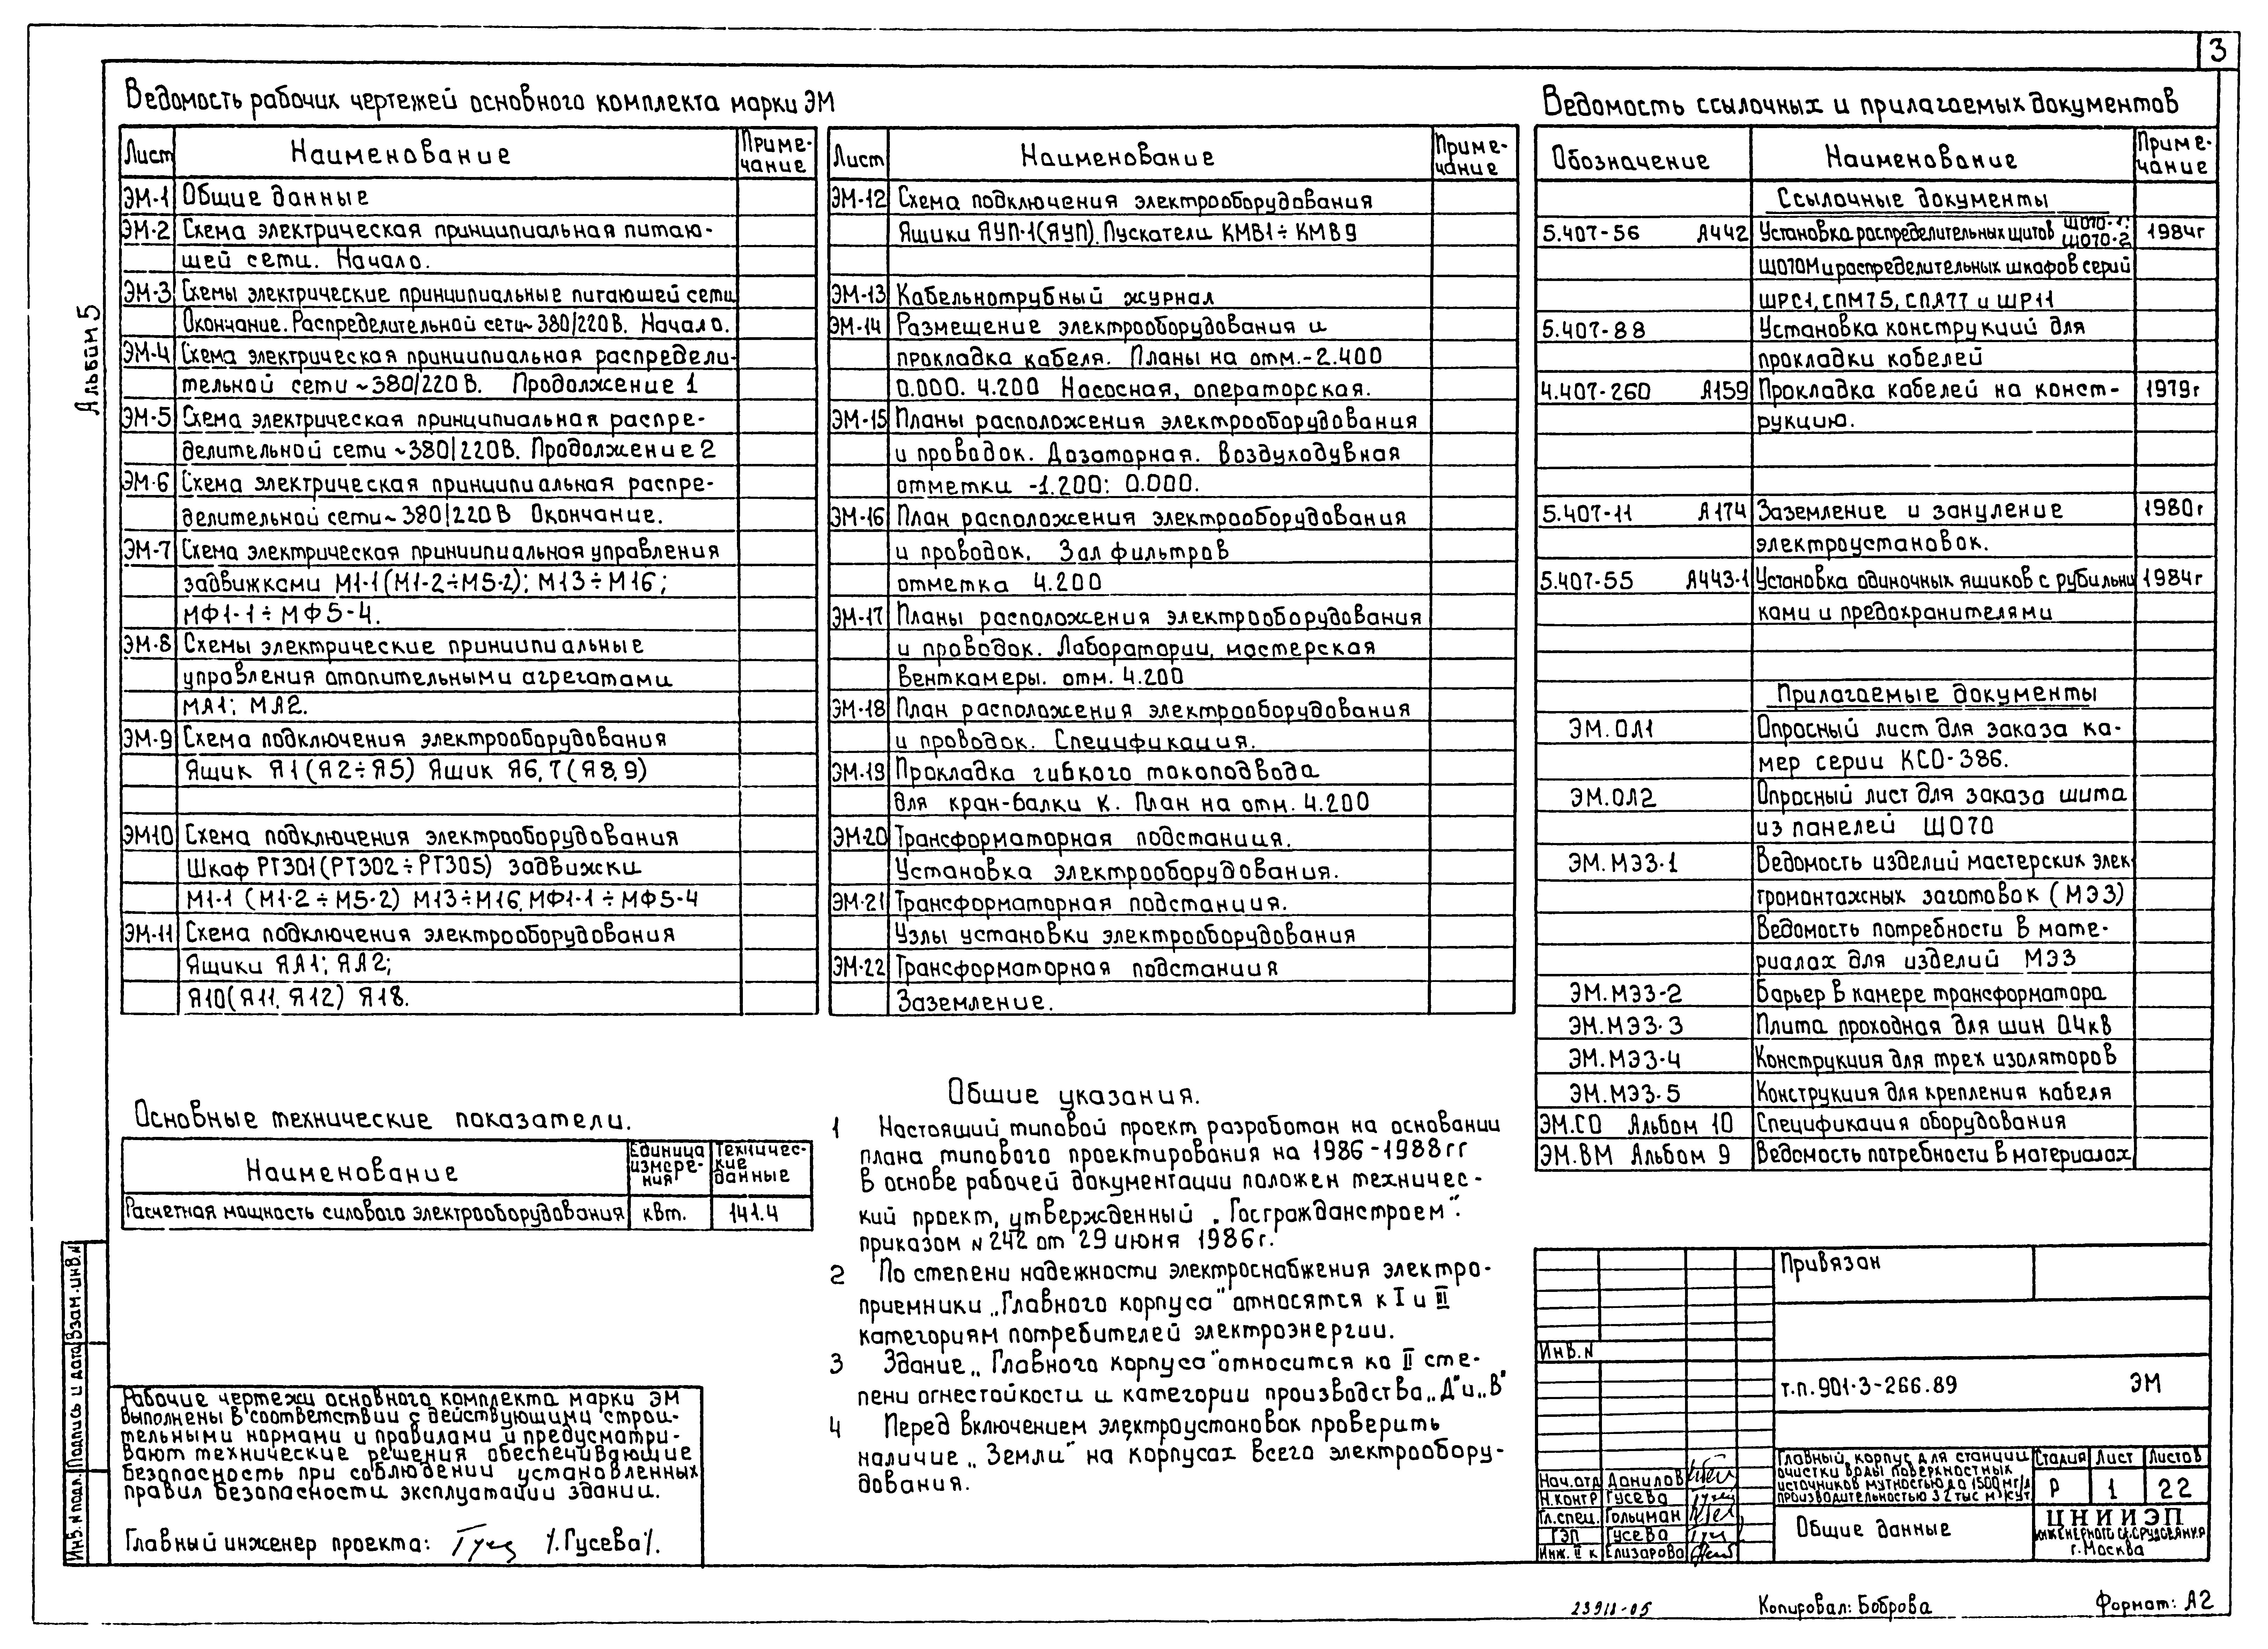 3
Альбом 5
Ведомость рабочих чертежей основного комплекта марки ЭМ
Лист Наименование Примечание
ЭМ-1 Общие данные
ЭМ-2 Схема электрическая принципиальная питаю-
щей сети. Начало.
ЭМ-3 Схемы электрические принципиальные питающей сети
Окончание. Распределительной сети ~380/220В. Начало.
ЭМ-4 Схема электрическая принципиальная распредели-
тельной сети ~380/220В. Продолжение 1
ЭМ-5 Схема электрическая принципиальная распре-
делительной сети ~380/220В. Продолжение 2
ЭМ-6 Схема электрическая принципиальная распре-
делительной сети ~380/220В Окончание.
ЭМ-7 Схема электрическая принципиальная управления
задвижками М1-1 (М1-2÷М5-2); М13÷М16;
МФ1-1÷МФ5-4.
ЭМ-8 Схемы электрические принципиальные
управления отопительными агрегатами
МА1; МА2.
ЭМ-9 Схема подключения электрооборудования
Ящик Я1 (Я2÷Я5) Ящик Я6,7 (Я8,9)
ЭМ10 Схема подключения электрооборудования
Шкаф РТ301 (РТ302÷РТ305) задвижки
М1-1 (М1-2÷М5-2) М13÷М16, МФ1-1÷МФ5-4
ЭМ-11 Схема подключения электрооборудования
Ящики ЯА1; ЯА2;
Я10(Я11, Я12) Я18.
Лист Наименование Примечание
ЭМ-12 Схема подключения электрооборудования
Ящики ЯУП-1(ЯУП). Пускатели КМВ1÷КМВ9
ЭМ-13 Кабельнотрубный журнал
ЭМ-14 Размещение электрооборудования и
прокладка кабеля. Планы на отм.-2.400
0.000. 4.200 Насосная, операторская.
ЭМ-15 Планы расположения электрооборудования
и проводок. Дозаторная. Воздуходувная
отметки -1.200; 0.000.
ЭМ-16 План расположения электрооборудования
и проводок. Зал фильтров
отметка 4.200
ЭМ-17 Планы расположения электрооборудования
и проводок. Лаборатории, мастерская
Венткамеры. отм. 4.200
ЭМ-18 План расположения электрооборудования
и проводок. Спецификация.
ЭМ-19 Прокладка гибкого токоподвода
для кран-балки К. План на отм. 4.200
ЭМ-20 Трансформаторная подстанция.
Установка электрооборудования.
ЭМ-21 Трансформаторная подстанция.
Узлы установки электрооборудования
ЭМ-22 Трансформаторная подстанция
Заземление.
Ведомость ссылочных и прилагаемых документов
Обозначение Наименование Примечание
Ссылочные документы
5.407-56 А442 Установка распределительных щитов ЩО70-1; ЩО70-2 1984г
ЩО70М и распределительных шкафов серий
ШРС1, СПМ75, СПА77 и ШР11
5.407-88 Установка конструкций для
прокладки кабелей
4.407-260 А159 Прокладка кабелей на конст- 1979г
рукцию.
5.407-11 А174 Заземление и зануление 1980г
электроустановок.
5.407-55 А443-1 Установка одиночных ящиков с рубильни 1984г
ками и предохранителями
Прилагаемые документы
ЭМ.ОЛ1 Опросный лист для заказа ка-
мер серии КСО-386.
ЭМ.ОЛ2 Опросный лист для заказа щита
из панелей ЩО70
ЭМ.МЭЗ-1 Ведомость изделий мастерских элек
тромонтажных заготовок (МЭЗ)
Ведомость потребности в мате-
риалах для изделий МЭЗ
ЭМ.МЭЗ-2 Барьер в камере трансформатора
ЭМ.МЭЗ-3 Плита проходная для шин 0.4кВ
ЭМ.МЭЗ-4 Конструкция для трех изоляторов
ЭМ.МЭЗ-5 Конструкция для крепления кабеля
ЭМ.СО Альбом 10 Спецификация оборудования
ЭМ.ВМ Альбом 9 Ведомость потребности в материалах
Основные технические показатели.
Наименование Единица измерения Технические данные
Расчетная мощность силового электрооборудования кВт. 141.4
Общие указания.
1 Настоящий типовой проект разработан на основании
плана типового проектирования на 1986-1988гг
В основе рабочей документации положен техничес-
кий проект, утвержденный „Госгражданстроем".
приказом N 242 от 29 июня 1986г.
2 По степени надежности электроснабжения электро-
приемники „Главного корпуса" относятся к I и III
категориям потребителей электроэнергии.
3 Здание „Главного корпуса" относится ко II сте-
пени огнестойкости и категории производства „Д" и „В"
4 Перед включением электроустановок проверить
наличие „Земли" на корпусах всего электрообору-
дования.
Рабочие чертежи основного комплекта марки ЭМ
выполнены в соответствии с действующими строи-
тельными нормами и правилами и предусматри-
вают технические решения обеспечивающие
безопасность при соблюдении установленных
правил безопасности эксплуатации здании.
Главный инженер проекта: /.Гусева/.
Инв.N подл. Подпись и дата Взам.инв.N
Привязан
Инв.N
т.п.901-3-266.89 ЭМ
Нач.отд Данилов
Н.контр Гусева
Гл.спец. Гольцман
ГЭП Гусева
Инж. II к Елизарова
Главный корпус для станции
очистки воды поверхностных
источников мутностью до 1500 мг/л
производительностью 3.2 тыс м³/сут
Стадия Лист Листов
Р 1 22
Общие данные
ЦНИИЭП
инженерного оборудования
г.Москва
23918-05 Копировал: Боброва Формат: А2